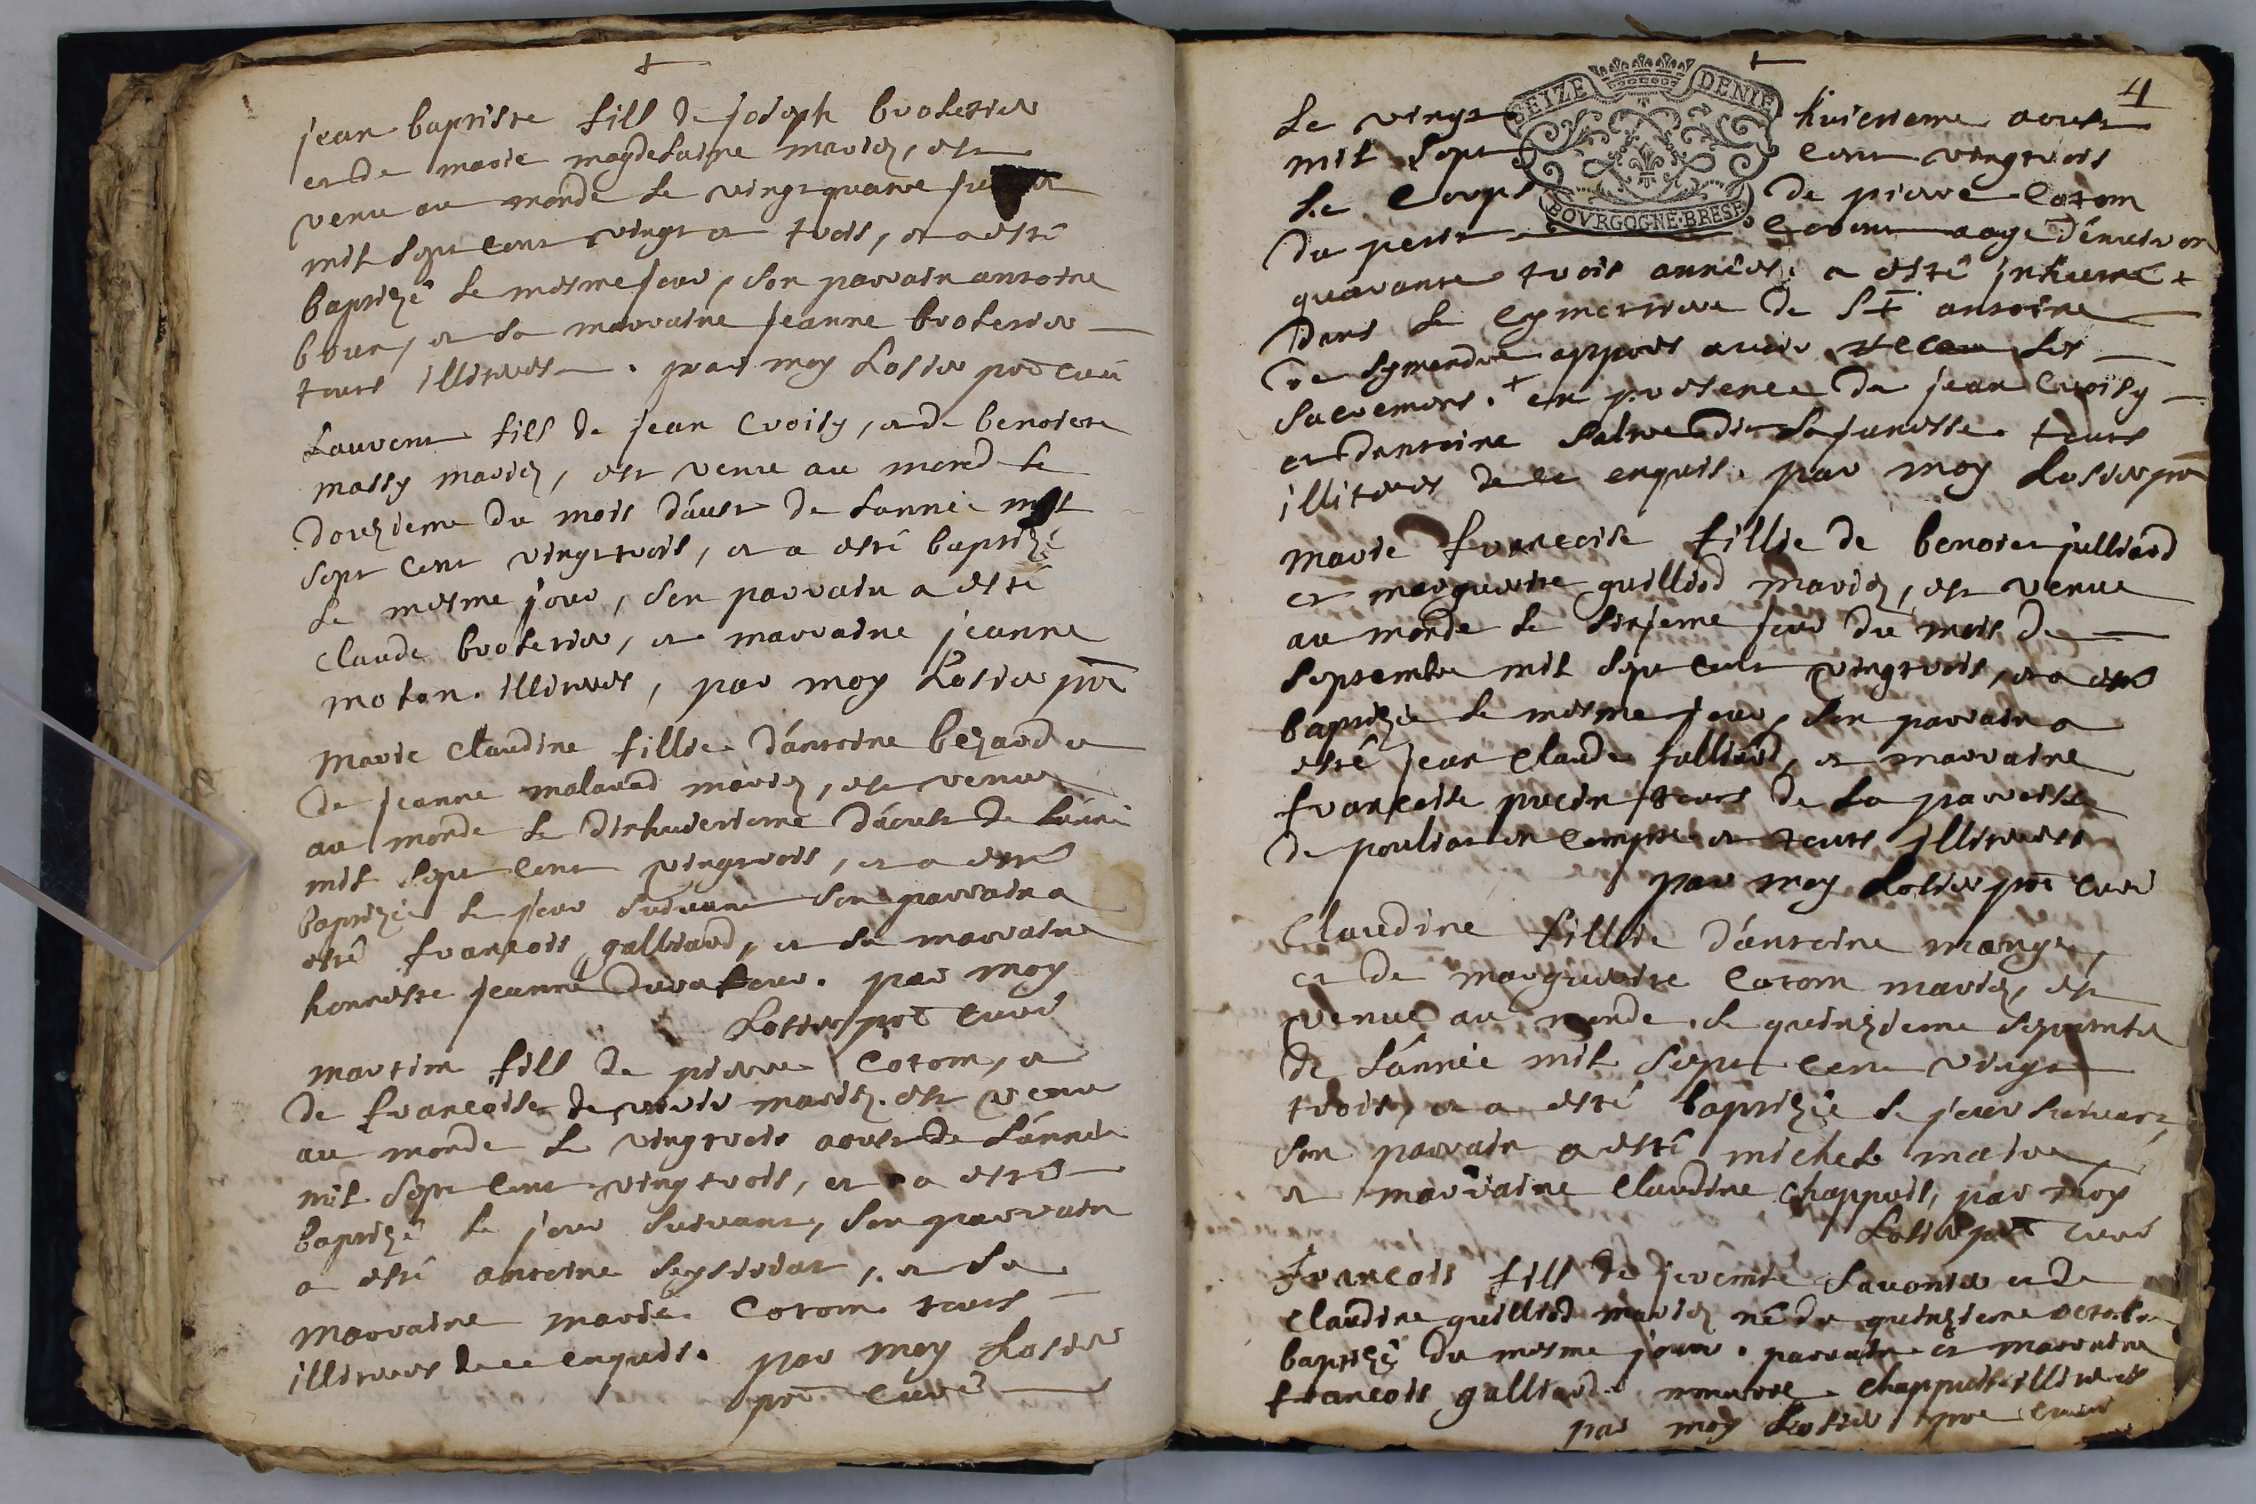 jean baptiste fill de joseph brokerier
et de marie magdelaine mariez, est
venu au monde le vingt quatre
mil sept cent vingt et trois, et a esté
baptizé le mesme jour, son parrain antoine
et sa marraine jeanne brokerier
touts illiteres. par moy Losier pre curé
Laurent fils de jean Croisy, et de benoiste
massy mariez, est venu au mond le
douzieme du mois d'aust de lannée mil
sept cent vingt trois, et a esté baptizé
le mesme jour, son parrain a esté
Claude brokerier, et marraine jeanne
molan. illiteres, par moy Losier pre
Marie Claudine fillie d'antoine bezard et
de jeanne malavard mariez, est venue
au monde le dixhuictieme d'aoust de lánné
mil sept cent vingtrois, et a esté
baptizée le jour suivant son parrain a
esté françois galliard, et sa marraine
honneste jeanne. par moy
Losier pre curé
Martin fill de pierre Cotom, et
de françoise mariez. est venu
au monde le vingtrois aoust de l'année
mil sept cent vingtrois, et a esté
baptizé le jour suivant, son parrain
a esté antoine, et sa
marraine marie Cotom touts
illiteres de ce enquis. par moy Losier
pre curé
4
SEIZE DENIE
BOVRGOGNE·BRESE
Le vingt huictieme aoust
mil sept cent vingtrois
le Corps de pierre Cotom
du petit aage d'environ
quarante trois années a esté inhumé +
dans le cymetiere de St antoine
de Symandre appres avoir receu les
sacremens. + en presence de jean Croisy
et dantoine dit la junesse touts
illiteres de ce enquis. par moy Losier pre
Marie françoise fillie de benoist julliard
et marguerite guilliod mariez, est venue
au monde le sixieme jour du mois de
septembre mil sept cent vingtrois, et a esté
baptizée le mesme jour, son parrain a
esté jean Claude julliard, et marraine
françoise pucin touts de la parroisse
de pouliat et touts illiteres
par moy Losier pre curé
Claudine fillie d'antoine mange,
et de marguerite Cotom mariez, est
venue au monde le quinzieme septembre
de l'année mil sept cent vingt
trois, et a esté baptizée le jour suivant,
son parrain a esté michel
et marraine Claudine Chappuis, par moy
Losier pre curé
François fill de jeremie Savonier et de
Claudine guilliod mariez né du quinzieme octobre
baptizé du mesme jour. parrain et marraine
françois galliard Chappuis illiteres
par moy Losier pre curé